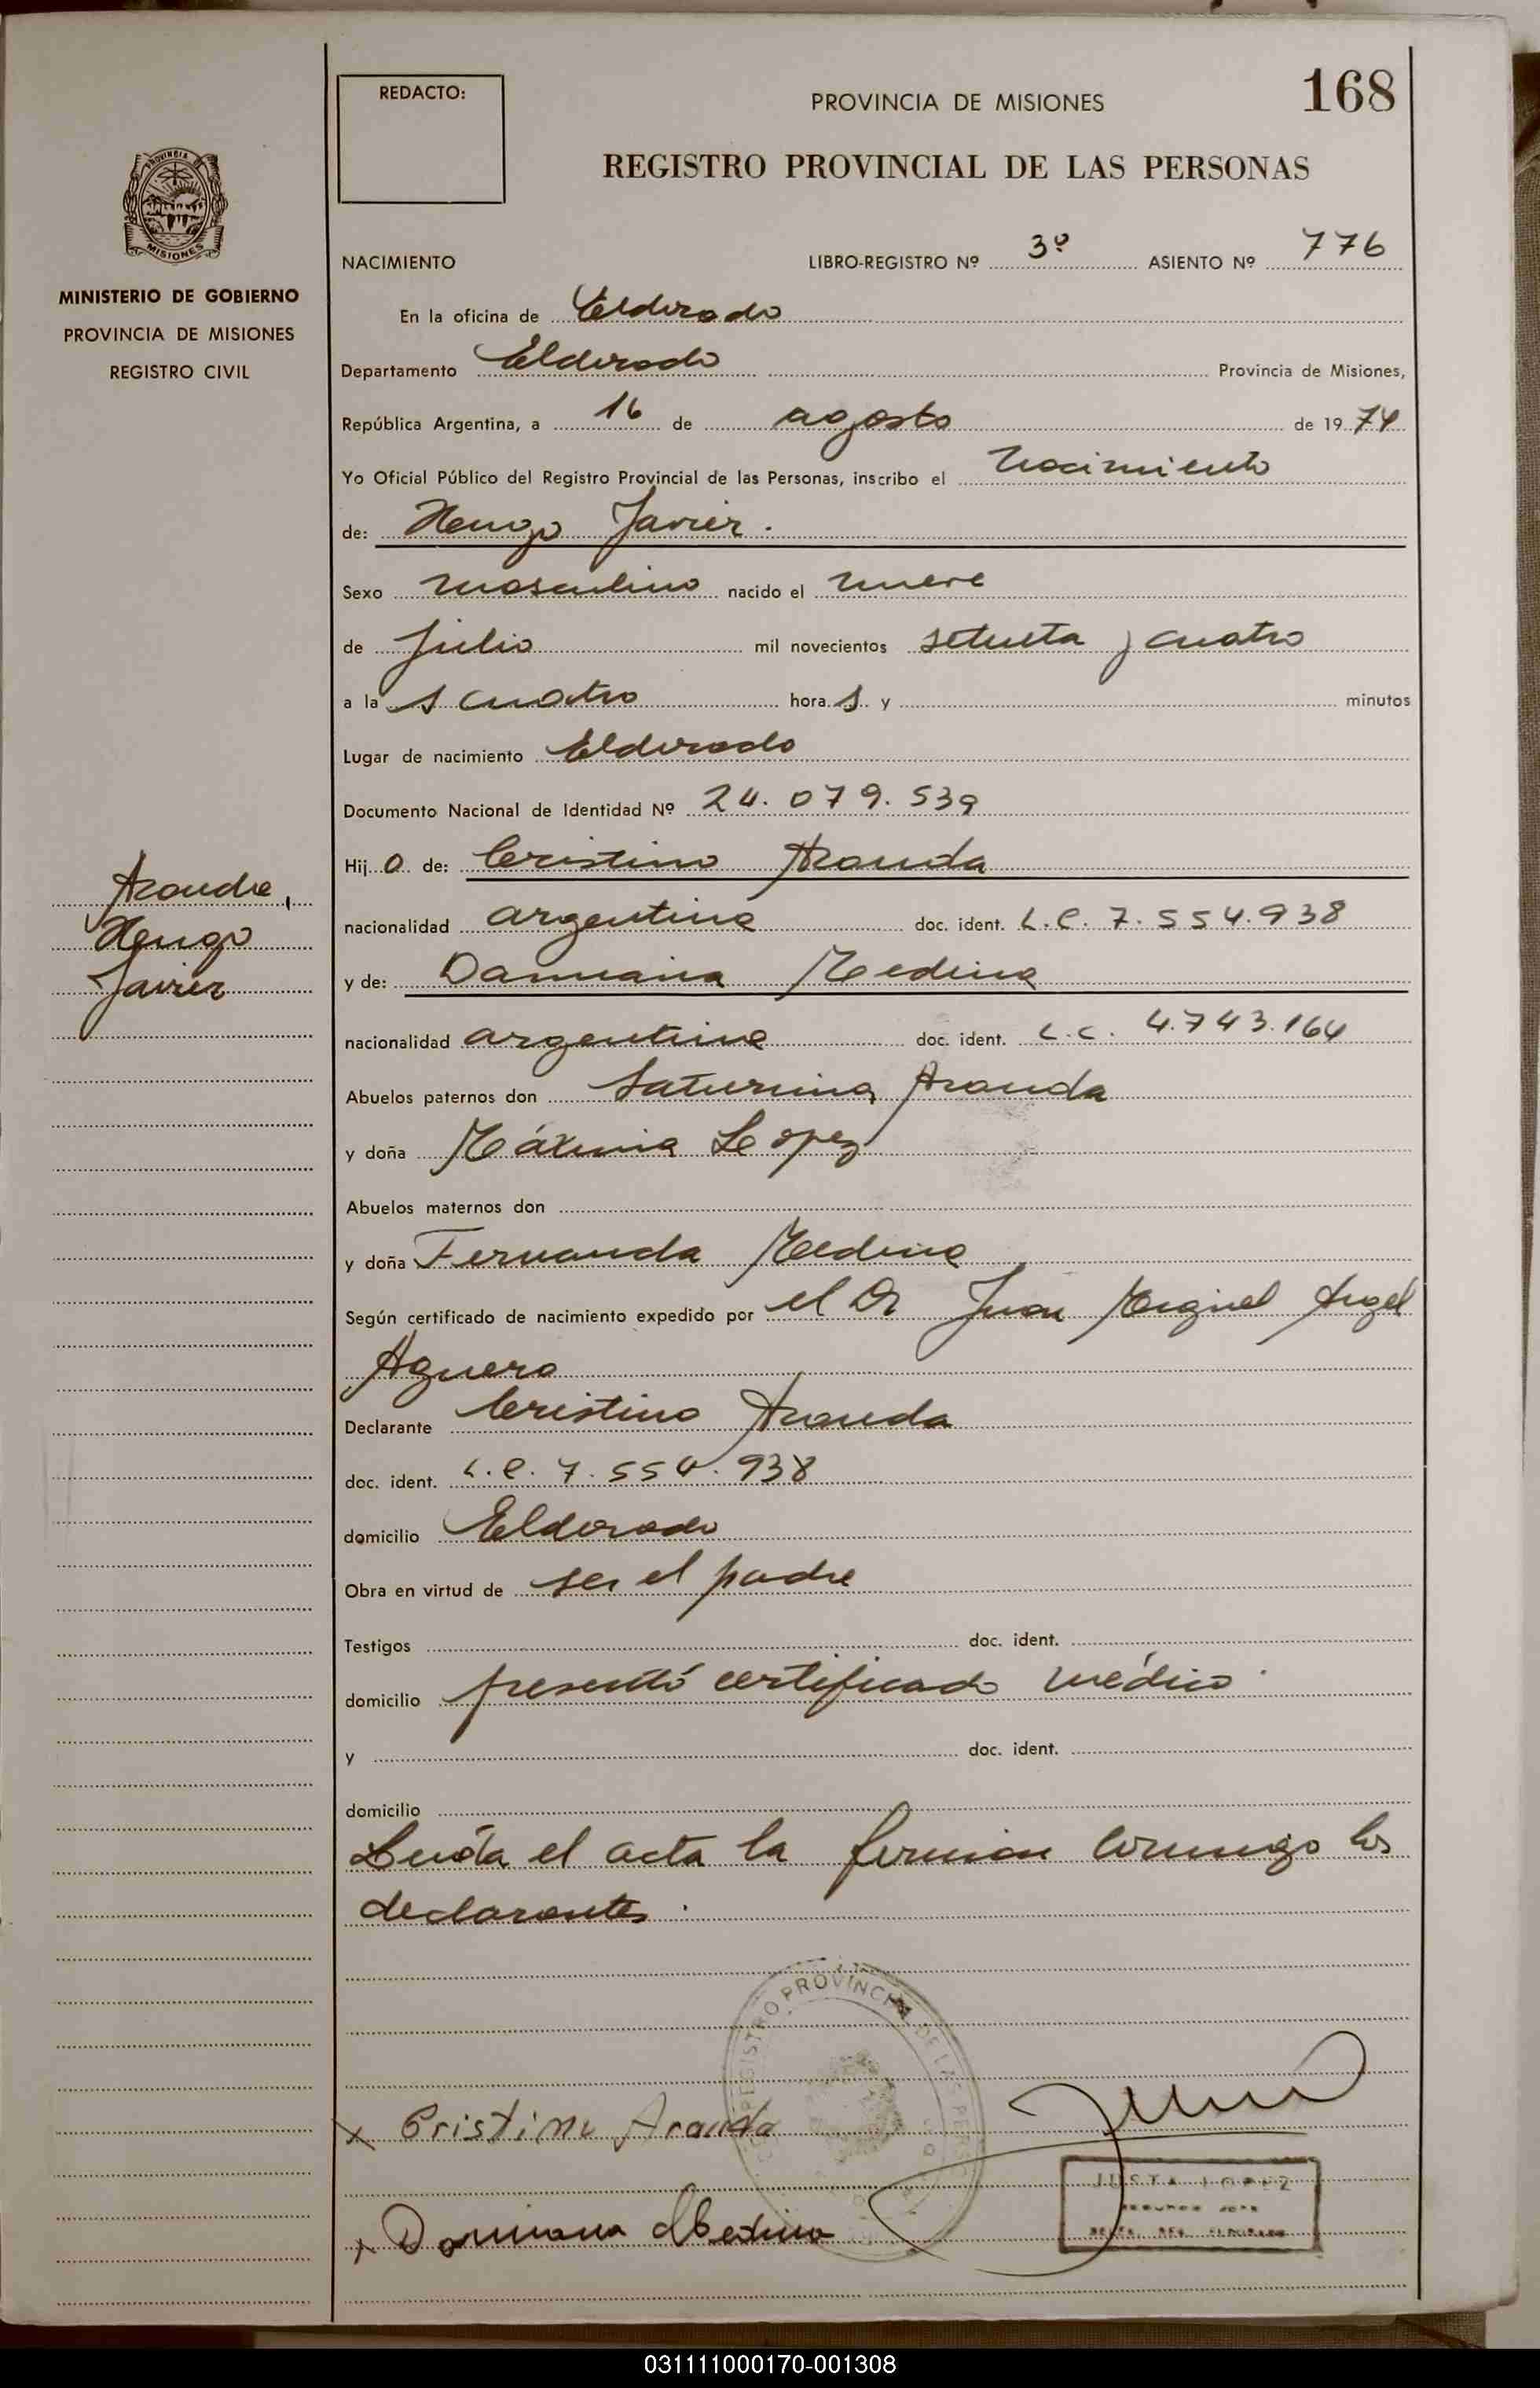 168
REDACTO:
PROVINCIA DE MISIONES
REGISTRO PROVINCIAL DE LAS PERSONAS
PROVINCIA DE
MISIONES
MINISTERIO DE GOBIERNO
PROVINCIA DE MISIONES
REGISTRO CIVIL
NACIMIENTO LIBRO-REGISTRO Nº 3º ASIENTO Nº 776
En la oficina de Eldorado
Departamento Eldorado Provincia de Misiones,
República Argentina, a 16 de agosto de 1974
Yo Oficial Público del Registro Provincial de las Personas, inscribo el nacimiento
de: Hugo Javier.
Sexo masculino nacido el nueve
de julio mil novecientos setenta y cuatro
a las cuatro horas y minutos
Lugar de nacimiento Eldorado
Documento Nacional de Identidad Nº 24.079.539
Hijo de: Cristino Aranda
nacionalidad argentina doc. ident. L.E. 7.554.938
y de: Damiana Medina
nacionalidad argentina doc. ident. L.C. 4.743.164
Abuelos paternos don Saturnino Aranda
y doña Máxima Lopez
Abuelos maternos don
y doña Fernanda Medina
Según certificado de nacimiento expedido por el Dr Juan Miguel Angel
Aguero
Declarante Cristino Aranda
doc. ident. L.E. 7.554.938
domicilio Eldorado
Obra en virtud de ser el padre
Testigos doc. ident.
domicilio presentó certificado médico.
y doc. ident.
domicilio
Leída el acta la firman conmigo los
declarantes.
Aranda,
Hugo
Javier
REGISTRO PROVINCIAL DE LAS PERSONAS
x Cristino Aranda
x Damiana Medina
JUSTA LOPEZ
031111000170-001308